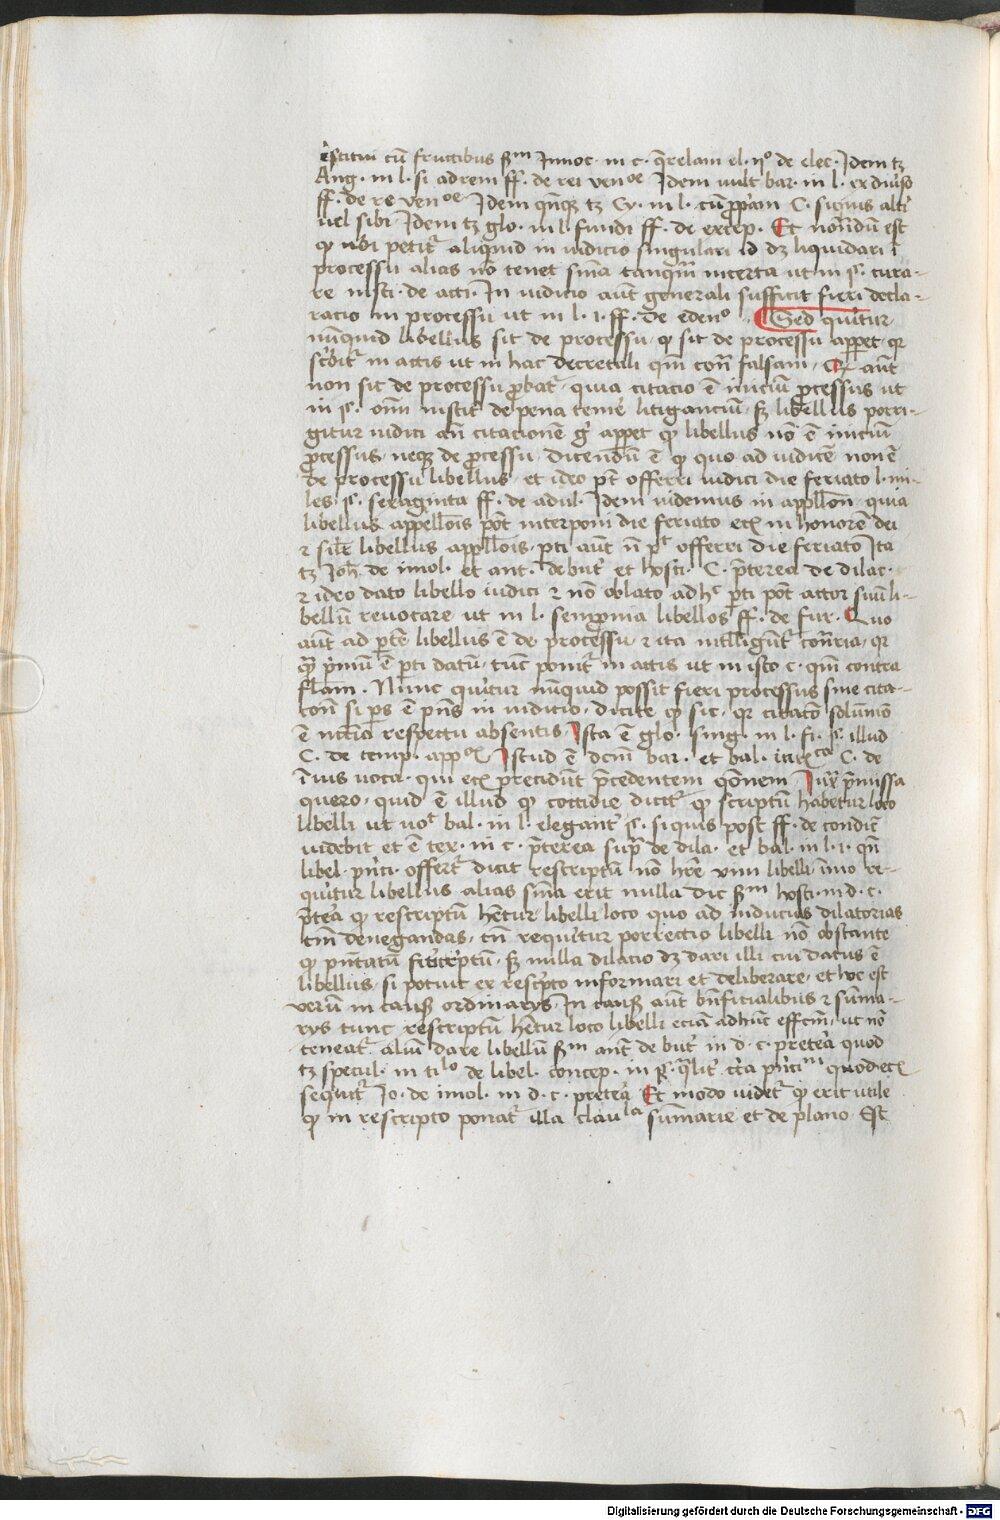 restitui cū fructibus ſm Innoc· in c· q̄relam el· nº de elec· Idem tz
Ang· in l· si ad rem ff· de rei venoe Idem uult bar· in l· ex diuſo
ff· de re venoe Idem qnqz tz Cy· in l· cū ꝓpriam C· si quis alt'i
uel sibi Idem tz glo· in l· fundi ff· de excep· Et notādū est
ꝙ ubi petitr aliquid in iudicio singulari id dz liquidari ī
processu alias nō tenet sn̄ia tanqm̄ incerta ut in §· cura-
re insti· de acti· In iudicio aūt generali sufficit fieri decla-
racio in processu ut in l· 1· ff· de edenº· Sed queritur
nūnquid libellus sit de processu· ꝙ sit de processu apꝑet qr
scͥbitr in actis ut in hac decretali qm̄ contͣ falsam· Qꝙ aūt
non sit de processu ꝓbatr quia citacio ē iniciū ꝓcessus ut
in §· om̄ instit' de pena teme' litiganciū· sz libellus porri-
gitur iudici an̄ citacionē g̊ apꝑet ꝙ libellus nō ē iniciū
ꝓcessus neqz de ꝓcessu· dicendū ē ꝙ quo ad iudicē non ē
de processu libellus· et ideo pt̄ offerri iudici die feriato l· mi-
les §· sexaginta ff· de adul· Idem uidemus in appłłon̄ quia
libellus appełłois pōt interponi die feriato etc̄ in honorē dei
⁊ silr̄ libellus appłłois· pti aūt n̄ pt offerri die feriato Ita
tz Joh̄ de imol· et ant· de but' et hosti· C· p̄terea de dilac·
⁊ ideo dato libello iudici ⁊ nō oblato adhͨ ꝑti pōt actor suū li-
bellū reuocare ut in l· sempronia libellos ff· de fur· Quo
aūt ad ꝑtē libellus ē de processu· ⁊ ita intłłigūtr cōn̄ria· qr
qn̄ p̄mū ē ꝑti datū· tūc ponitr in actis ut in isto c· qm̄ contra
flam̄· Nunc queritur nūnquid possit fieri processus sine cita-
con̄ si ꝑs ē pn̄s in iudicio· dicite ꝙ sic· qr citatō solūmō
ē nccia respectu absentis· Ista ē glo· sing· in l· fi· §· illud
C· de temp· app· Istud ē dcm̄ bar· et bal· C· de
ī ius uoca· qui etc̄ precidūt p̄cedentem qōnem Iuxͣ p̄missa
quero· quid ē illud ꝙ cottidie dicitr ꝙ scriptū habetur loco
libelli ut uot bal· in l· eleganter §· si quis post ff· de condict'
indebit' et ē tex· in c· p̄terea supͣ de dila· et bal· in l· 1· qn̄
libel· pn̄ci· offertr dicit rescriptū nō hr̄e uim libelli· imo re-
quiritur libellus alias sn̄ia erit nulla dic ſm hosti· in d· c·
p̄tea' ꝙ rescriptū hētur libelli loco quo ad inducias dilatorias
tm̄ denegandas· tn̄ requiritur porrectio libelli nō obstante
ꝙ pn̄tatū sit rescͥptū· sz nulla dilacio dz dari illi cui datus ē
libellus· si potuit ex rescͥpto informari et deliberare· et hoc est
uerū in causis ordinarijs· In causis aūt bn̄ficialibus ⁊ sūma-
rijs tunc rescriptū hētur loco libelli eciā ad hūc effcm̄· ut nō
teneatr aliū dare libellū ſm ant' de but' in d· c· pretea' quod
tz specul· in tilo de libel· concep· in §· qͣlit' ctͣ pn̄cim quod etc̄
sequitr Jo· de imol· in d· c· pretea' Et modo uidetr ꝙ erit utile
ꝙ in rescripto ponatr illa claula summarie et de plano· Est
Digitalisierung gefördert durch die Deutsche Forschungsgemeinschaft - DFG